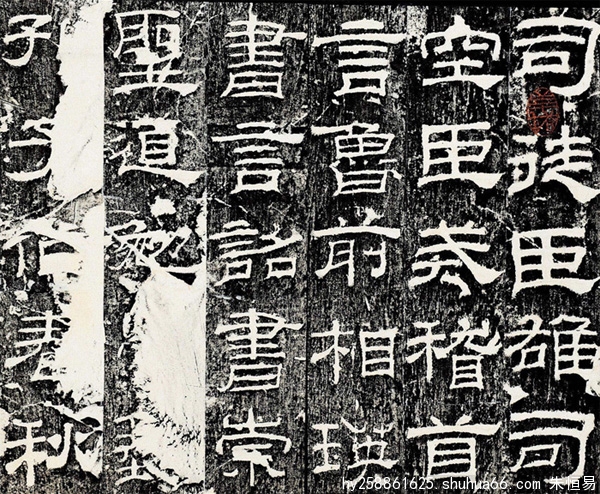 司徒臣雄司
空臣戒稽首
言魯前相瑛
書言詔書崇
聖道勉
子作春秋
hy258861625.shuhua66.com 朱恒易